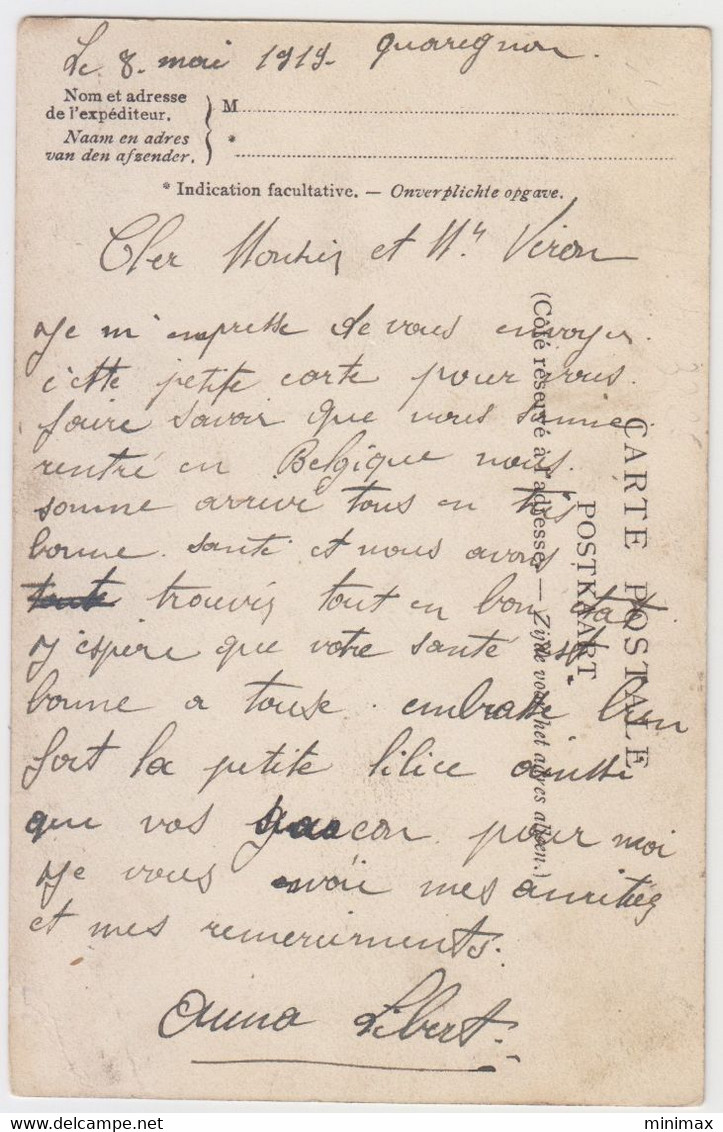 Le 8. mai 1919. quaregnon.
Nom et adresse
de l'expéditeur.
Naam en adres
van den afzender.
M
*
* Indication facultative. — Onverplichte opgave.
Cher Monsieur et Mme Veron
Je m'empresse de vous envoyer
cette petite carte pour vous.
faire savoir que nous somme
rentré en Belgique nous.
somme arrivé tous en très
bonne. santé et nous avons
trouvés tout en bon état
J'espère que votre santé est
bonne a touse. embrasse bien
fort la petite lilice aussi
que vos garcon. pour moi
Je vous envoie mes amitiés
et mes remerciments.
Anna Libert.
CARTE POSTALE
POSTKAART
(Côté réservé à l'adresse. — Zijde voor het adres alleen.)
minimax